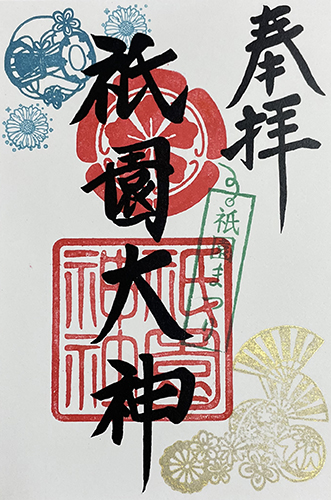 奉拝
祇園大神
祇園まつり
祇園神社